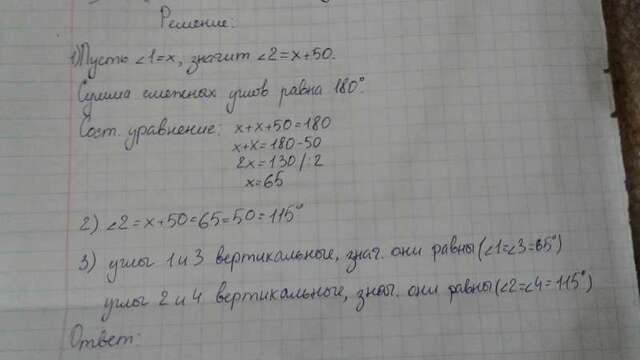 Решение:
1) Пусть ∠1=x, значит ∠2=x+50.
Сумма смежных углов равна 180°.
Сост. уравнение: x+x+50=180
x+x=180-50
2x=130/:2
x=65
2) ∠2=x+50=65=50=115°
3) углы 1 и 3 вертикальные, знач. они равны (∠1=∠3=65°)
углы 2 и 4 вертикальные, знач. они равны (∠2=∠4=115°)
Ответ: